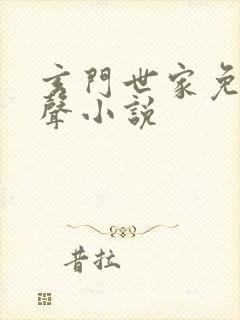 玄門世家免
聲小説
昔拉